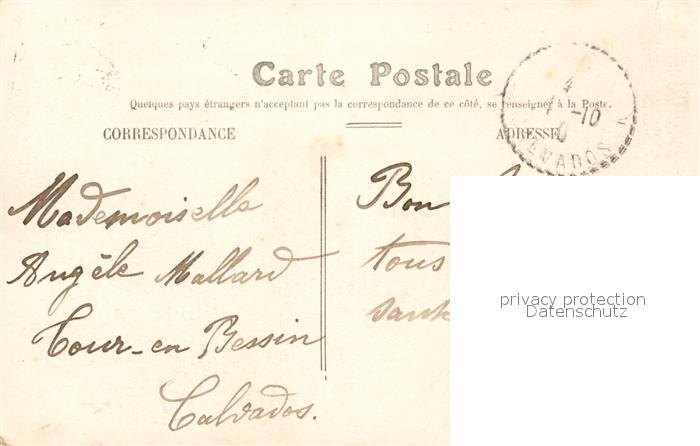 Carte Postale
Quelques pays étrangers n'acceptant pas la correspondance de ce côté, se renseigner à la Poste.
CORRESPONDANCE
ADRESSE
4
-10
CALVADOS
Mademoiselle
Angèle Mallard
Tour-en Bessin
Calvados.
Bon
tous
privacy protection
Datenschutz